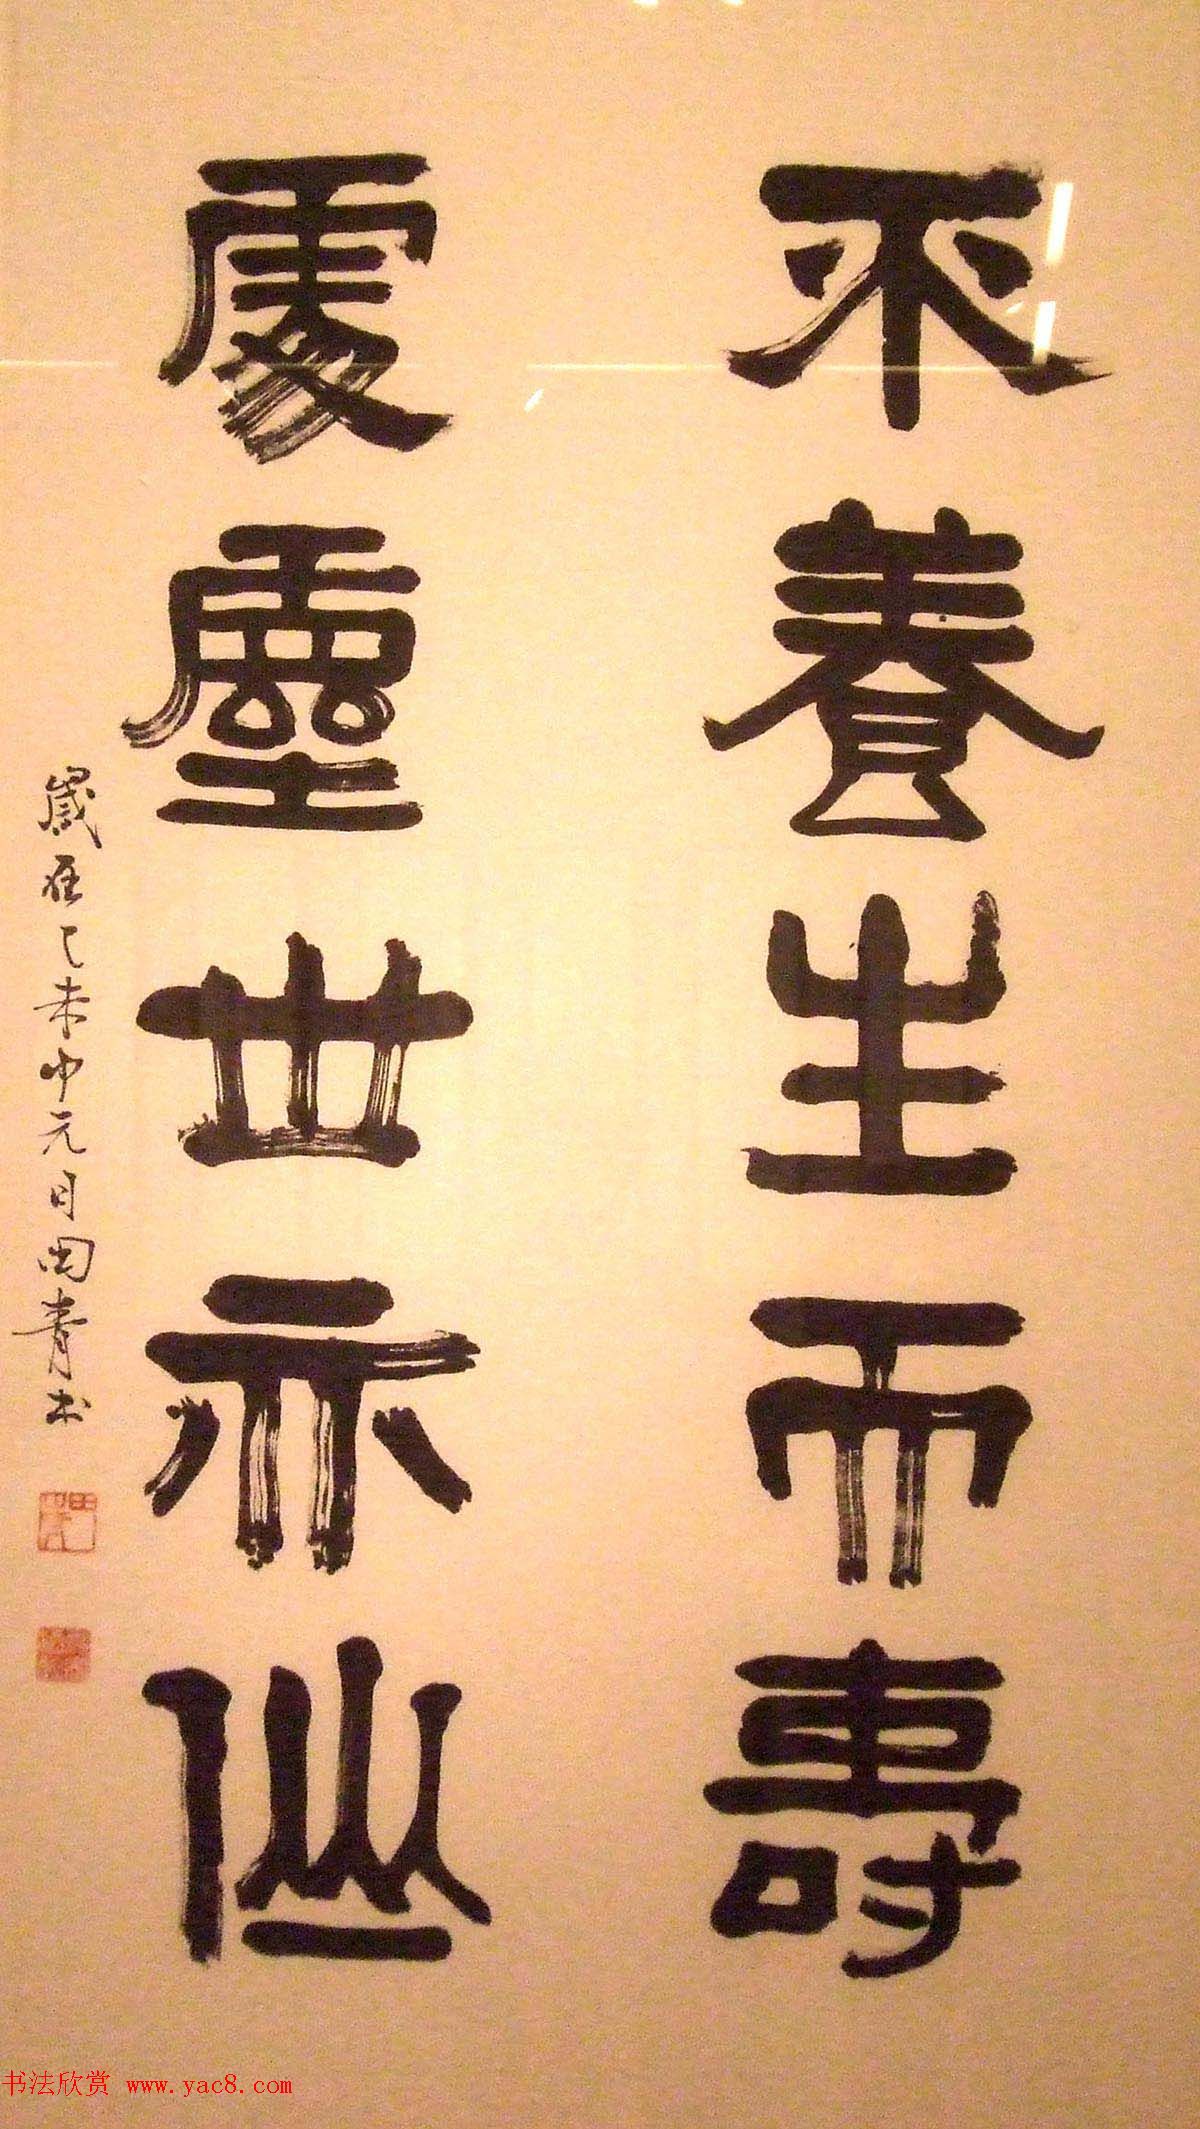 不養生而壽
處塵世亦仙
歲在己未中元月田青書
书法欣赏 www.yac8.com